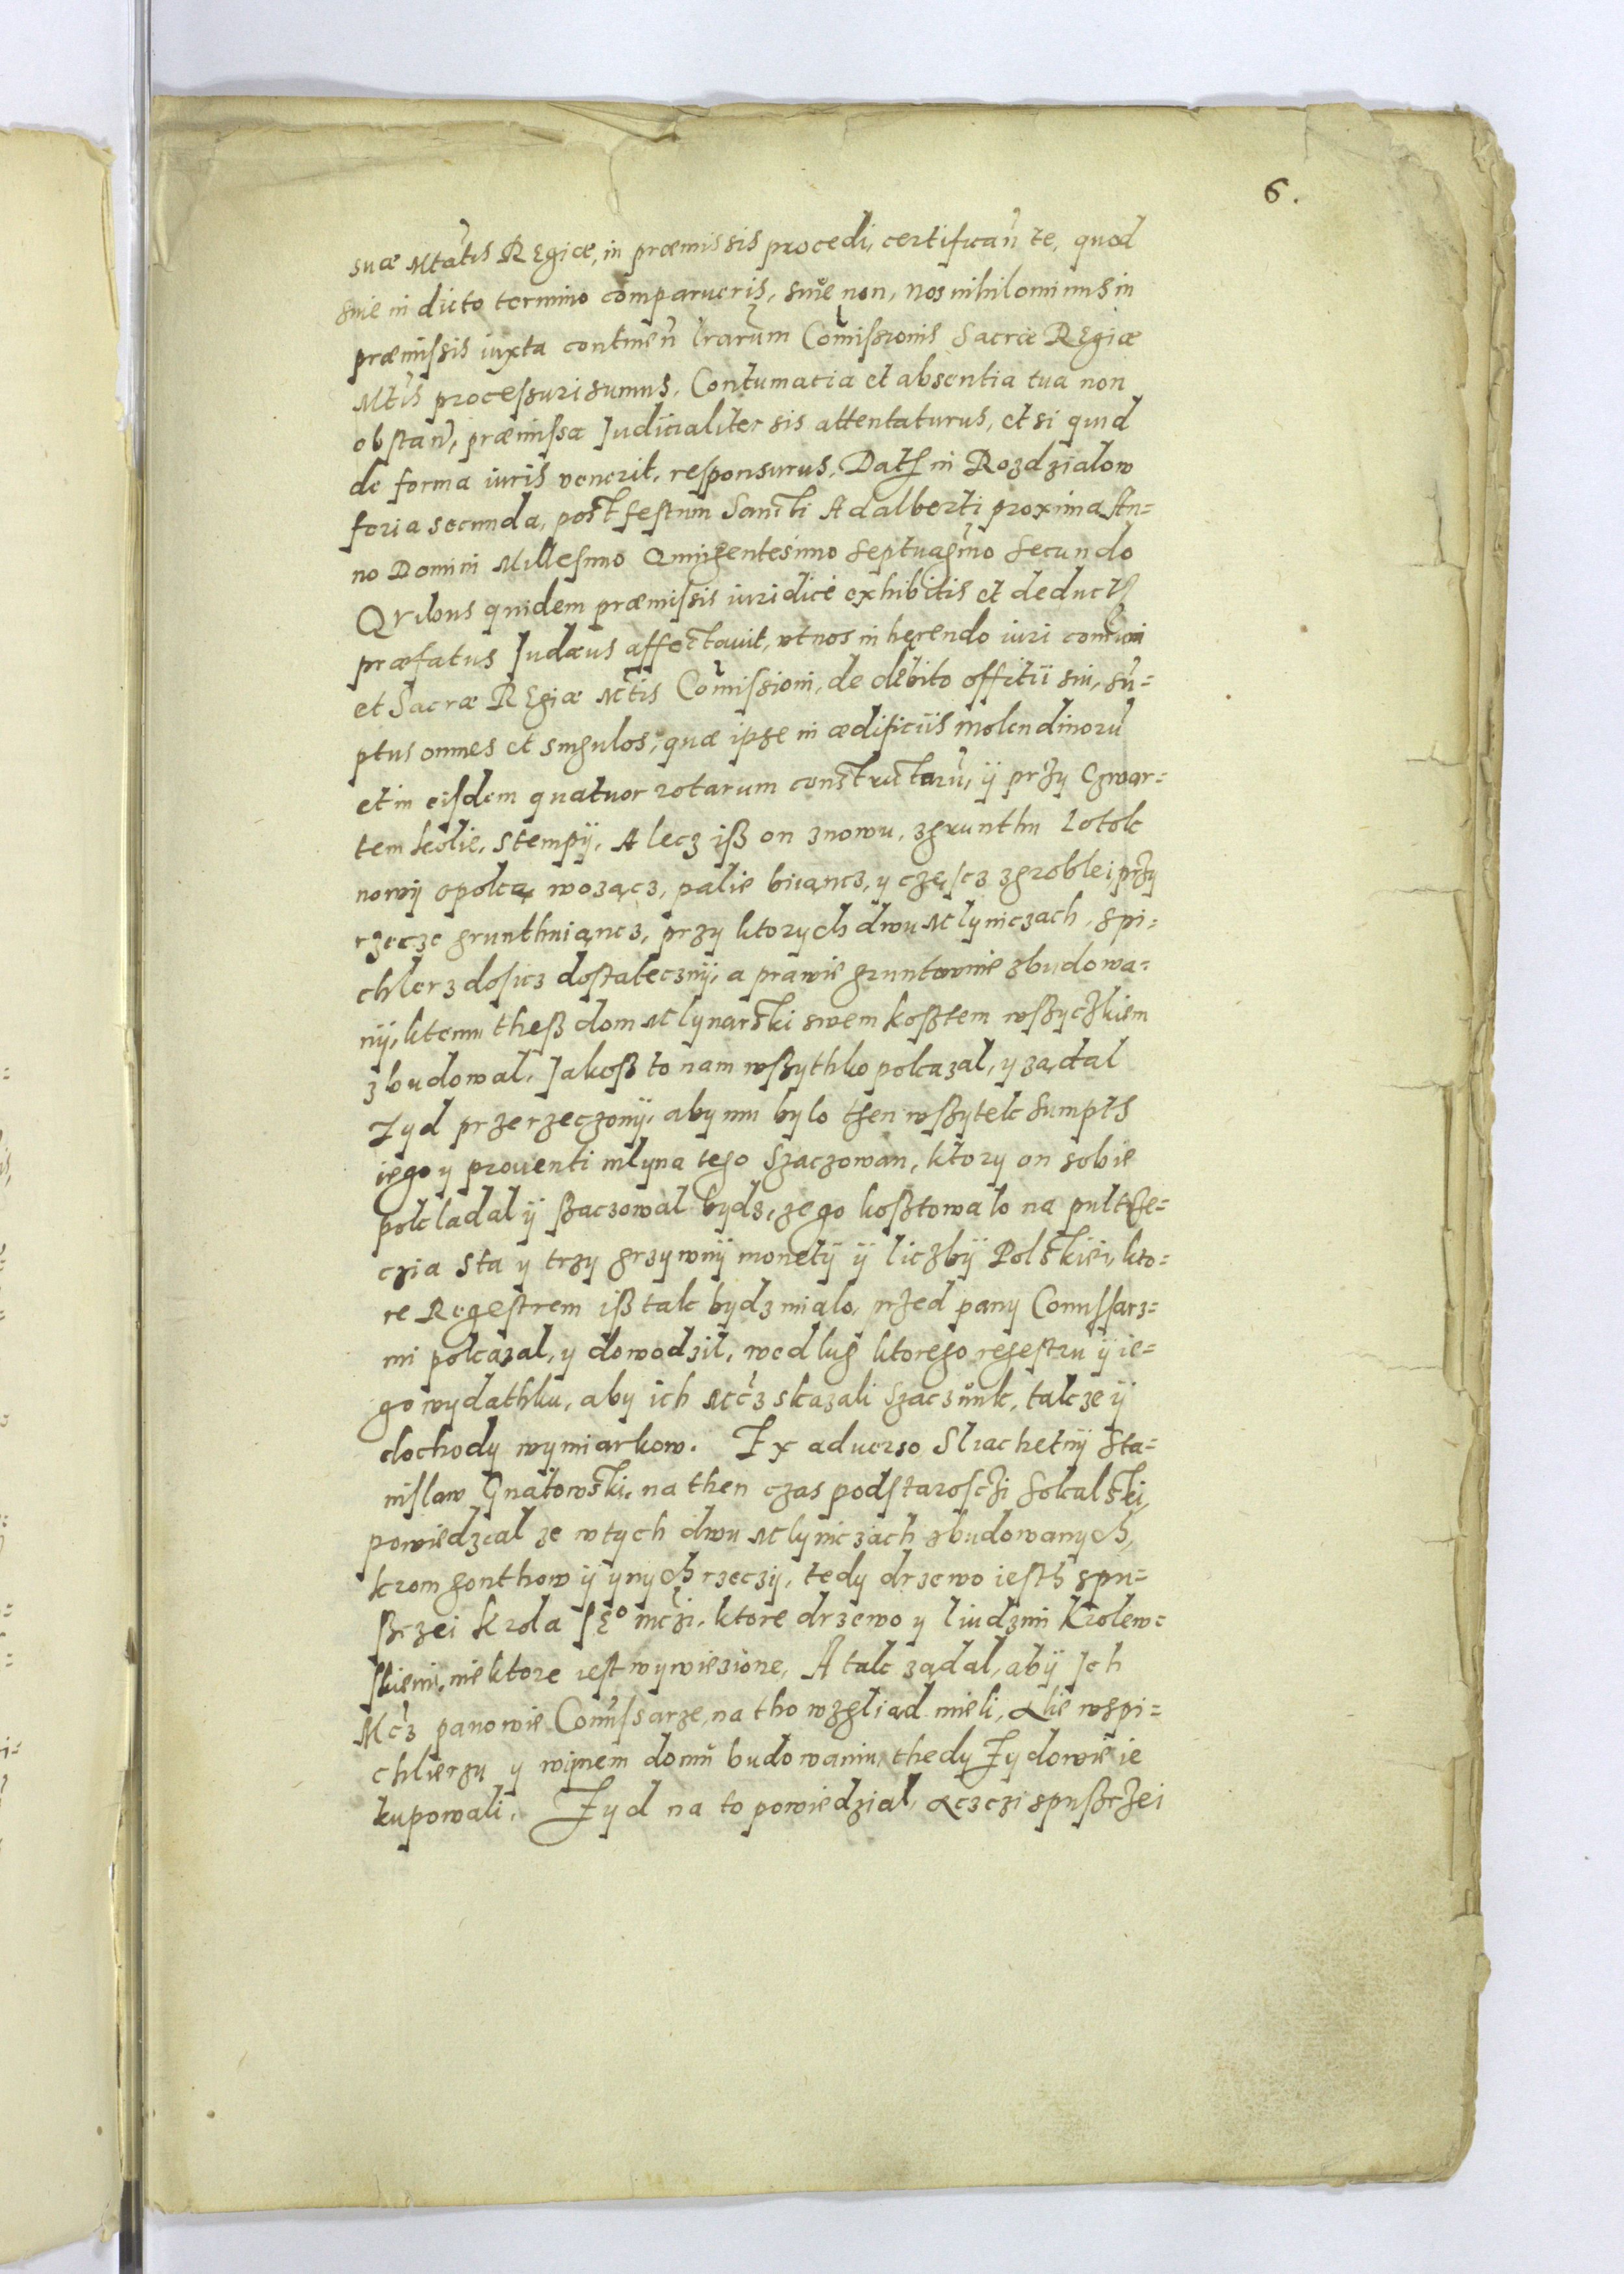 6.
suæ Mtãtis REgiæ, in præmissis procedi, certifican̄ te, quod
siue in dicto termino comparueris, siue non, nos nihilominus in
præmissis iuxta continen̄ l̄rarum Com̄issionis Sacræ REgiæ
Mtis processuri sumus, Contumacia et absentia tua non
obstan̄, præmissa Judicialiter sis attentaturus, et si quid
de forma iuris venerit, responsurus. Datȝ in Rozdzialow
feria secunda, post festum Sancti Adalberti proxima An=
no Domini Millesimo Quingentesimo Septuag̃mo Secundo
Qvibus quidem præmissis iuridice exhibitis et deductȝ
præfatus Judæus affectauit, vt nos inherendo iuri com̄uni
et Sacræ REgiæ Mtis Com̄issioni, de debito offitii sui, su̅=
ptus omnes et singulos, quæ ipse in ædificiis molendinoru̅
et in eisdem quatuor rotarum constructaru̅, ÿ przy Czwar=
tem kolie, stempÿ. A lecz iß on znowu, zgrunthu lotok
nowÿ opolcą wozącz, palie biiąncz, y częscz zgroblei przy
rzecze grunthuiąncz, przy ktorych dwu Mlyniczach, spi=
chlerz dosicz dostatecznÿ, a prawie gruntownie zbudowa=
nÿ, ktemu theß dom Mlynarski swem kosztem wszyczkiem
zbudowal. Jakoß to nam wszythko pokazal, y ządal
Zyd przerzeczonÿ, aby mu bylo then wszytek sumpth
iego y prouenti mlyna tego Szaczowan, ktory on sobie
pokladal ÿ szaczowal bydz, ze go kosztowalo na pultrze=
czia sta y trzy grzywnÿ monetÿ ÿ liczbÿ Polskiei, kto=
re Regestrem iß tak bydz mialo, przed pany Comissarz=
mi pokazal, y dowodzil, wedlug ktorego regestru ÿ ie=
go wydathku, aby ich Mcz skazali Szaczunk, takze ÿ
dochody wymiarkow. Ex aduerso Sliachetnÿ Sta=
nislaw Gnatowski, na then czas podstarosczi Sokalski,
powiedzial ze wtych dwu Mlyniczach zbudowanych,
krom gonthow ÿ ynych rzeczÿ, tedy drzewo iesth spu=
sczei Krola Jeº mczi, ktore drzewo y liudzmi Krolew=
skiemi, niektore iest wywiezione, A tak ządal, abÿ Jch
Mcz panowie Com̄issarze, na tho wzgliąd mieli, Alie wspi=
chlierzu y winem domu̅ budowaniu, thedy Zydowie ie
kupowali. Zyd na to powiedzial, Aczczi spusczei